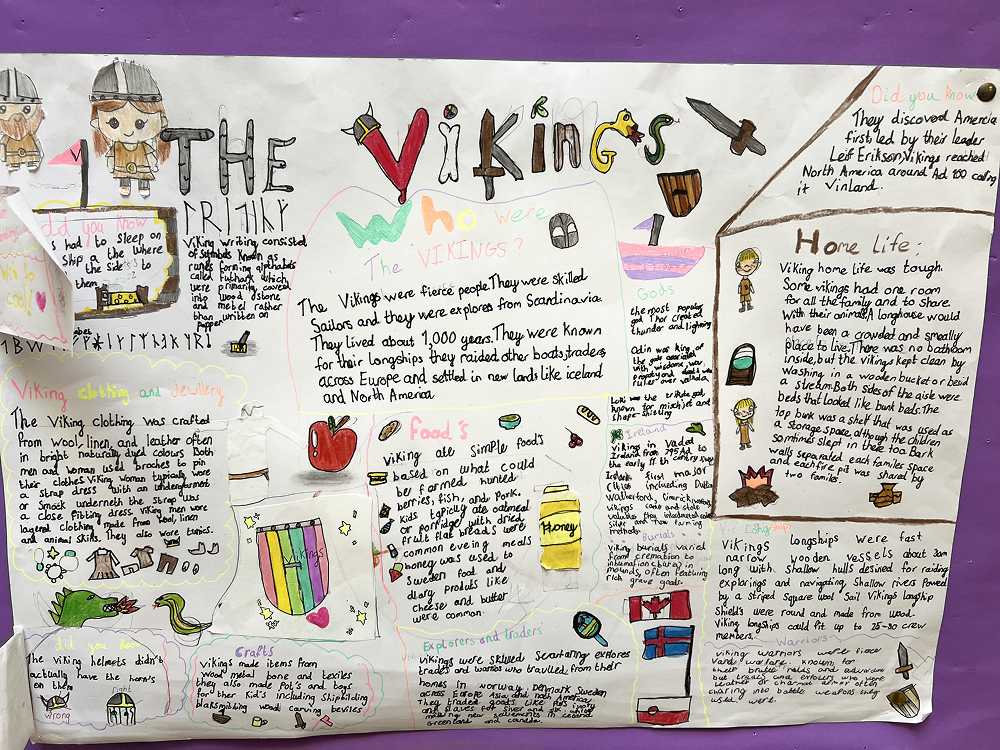 THE VikinGS
did you know
s had to sleep on
ship a the where
the side's to
them
cool!
Viking writing consisted
of Symbols known as
runes forming alphabets
called futhark which
were primarily carved
into wood stone
and metel rather
than written on
Papper
Who were
The VIKINGS?
The Vikings were fierce people.They were skilled
Sailors and they were explores from Scandinavia.
They Lived about 1,000 years.They were known
for their longships they raided other boats,traders,
across Europe and settled in new lands like iceland
and North America.
Gods
the most populer
god Thor created
thunder and lighing
Odin was king of
the gods associated
with wisdome, war
death
ruller over valhalla,
Loki was the god,
known for mischief and
shape-shifting
Did you know
They discoverd Amercia
first, led by their leader
Leif Erikson,Vikings reached
North America around Ad 100 calling
it Vinland.
Home life:
Viking home life was tough.
Some vikings had one room
for all the family and to share
With their animal.A longhouse would
have been a crowded and smeally
place to live.There was no bathoom
inside,but the vikings kept clean by
washing in a wooden bucket or besid
a stream.Both sides of the aisle were
beds that looked like bunk beds.The
top bunk was a shelf that was used as
a storage space,although the children
somtimes slept in there too.Bark
walls separated each familes space
and each fire pit was shared by
two families.
Viking clothing and jewellery
The Viking clothing was crafted
from wool,linen, and leather often
in bright naturally dyed colours Both
men and woman used broches to pin
their clothes.Viking woman typically wore
a strap dress with an undergarment
or Smock underneath the strap was
a close fitting dress. viking men wore
layered clothing made from wool,linen
and animal skills. They also wore tunics.
food's
Viking ate simple food's
based on what could
be farmed hunted
berries, fish, and Pork.
Kids typiclly ate oatmeal
or porridge with dried
fruit flat bread's were
common evening meals
honey was used to
Sweden food and
diary produts like
cheese and butter
were common.
Honey
Vikings
Ireland
Vikings in vaded
Ireland from 795 AD to
the early 11 th century
Irelands first major
Cities including Dublin
Watherford, Limerick
Vikings came and stole
silver and farming
methods
Burials
Viking burials varied
from cremation to
inhumation
mounds, often featuring
rich grave goods.
Longships
Vikings longships were fast
narrow wooden vessels about 30m
long with shallow hulls desined for raiding
explorings and navigating, Shallow rivers Powed
by a striped Square wool Sail Vikings longship
Shield's were round and made from wood.
Viking longships could fit up to 25-80 crew
members.
did you know
The viking helmets didn't
actually have the horn's
on them
right
wrong
Crafts
Vikings made items from
Wood metal bone and textiles
they also made Pot's and toys
for ther kid's including Shipbilding
blaksmithing wood carving
Explorers and traders
Vikings were Skilled Seafaring explores
trades and warriors who travelled from their
homes in Norway Denmark Sweden
across Europe Asia and noth America.
They traded goods like furs ivory
and slaves for silver and silk while
making new settlements in iceland
Greenland and canada.
Warriors
viking warriors were fierce
known for
their brutel raids and advanced
but traders and explores who wore
leather or chainmail armer often
charing into battle weapons they
used were.